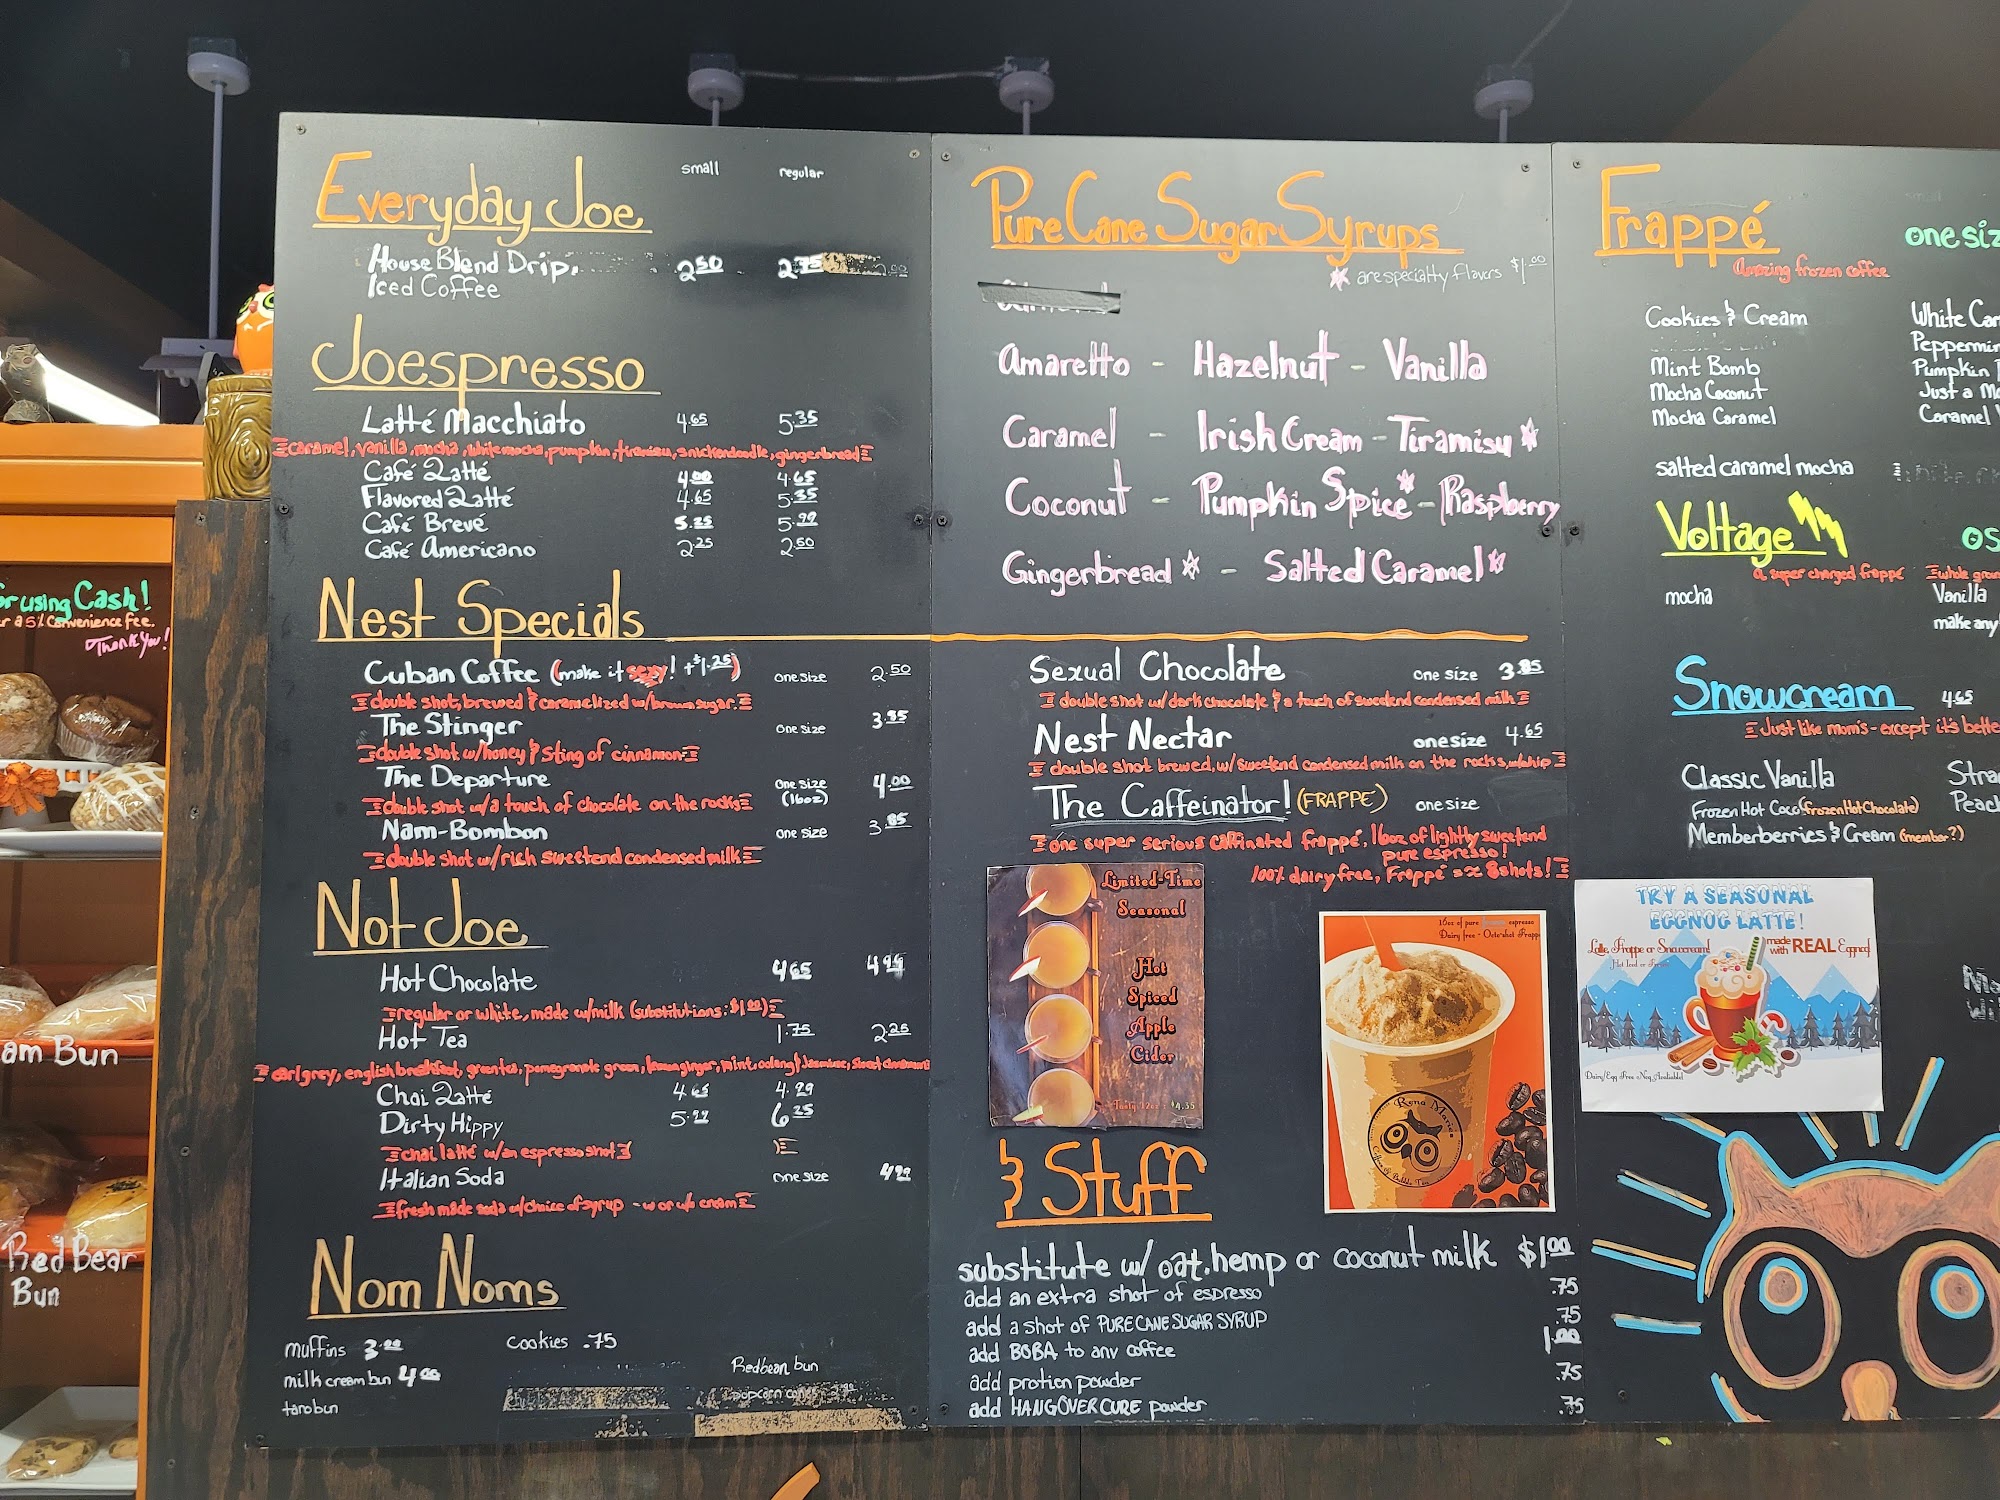 Everyday Joe
small regular
House Blend Drip, 2.50 2.75
Iced Coffee
Joespresso
Latté Macchiato 4.65 5.35
caramel, vanilla, mocha, white mocha, pumpkin, tiramisu, snickerdoodle, gingerbread
Café Latté 4.00 4.65
Flavored Latté 4.65 5.35
Café Brevé 5.25 5.99
Café Americano 2.25 2.50
Nest Specials
Cuban Coffee (make it sexy! +$1.25) one size 2.50
double shot, brewed & caramelized w/brown sugar.
The Stinger one size 3.85
double shot w/honey & sting of cinnamon
The Departure one size (16oz) 4.00
double shot w/a touch of chocolate on the rocks
Nam-Bombon one size 3.85
double shot w/rich sweetend condensed milk
Not Joe
Hot Chocolate 4.65 4.99
regular or white, made w/milk (substitutions: $1.00)
Hot Tea 1.75 2.25
earl grey, english breakfast, green tea, pomegranate green, lemon ginger, mint, oolong/Jasmine, Sweet cinnamon
Chai Latté 4.65 4.99
Dirty Hippy 5.99 6.25
chai latté w/an espresso shot
Italian Soda one size 4.99
fresh made soda w/choice of syrup - w or w/o cream
Nom Noms
muffins 3.00 cookies .75
milk cream bun 4.00 Redbean bun
taro bun popcorn
Pure Cane Sugar Syrups
are specialty flavors $1.00
Amaretto - Hazelnut - Vanilla
Caramel - Irish Cream - Tiramisu *
Coconut - Pumpkin Spice* - Raspberry
Gingerbread * - Salted Caramel *
Sexual Chocolate one size 3.85
double shot w/dark chocolate & a touch of sweetend condensed milk
Nest Nectar one size 4.65
double shot brewed, w/sweetend condensed milk on the rocks, w/whip
The Caffeinator! (FRAPPE) one size
one super serious caffinated frappé, 16oz of lightly sweetend
pure espresso!
100% dairy free, Frappé = x 8 shots!
Limited-Time
Seasonal
Hot
Spiced
Apple
Cider
Tasty 12oz : $4.35
16oz of pure espresso
Dairy free - Octo-shot Frappe
Rena Maries
Coffee & Bubble Tea
& Stuff
substitute w/ oat, hemp or coconut milk $1.00
add an extra shot of espresso .75
add a shot of PURE CANE SUGAR SYRUP .75
add BOBA to any coffee 1.00
add protion powder .75
add HANGOVER CURE powder .75
Frappé
one siz
Amazing frozen coffee
Cookies & Cream White Car
Peppermin
Mint Bomb Pumpkin
Mocha Coconut Just a Mo
Mocha Caramel Caramel
salted caramel mocha
Voltage os
a super charged frappé whole groun
mocha Vanilla
make any
Snowcream 4.65
Just like mom's - except it's bette
Classic Vanilla Stra
Frozen Hot Coco (frozen Hot Chocolate) Peach
Memberberries & Cream (member?)
TRY A SEASONAL
EGGNOG LATTE!
Latte, Frappe or Snowcream! made with REAL Eggnog!
Hot Iced or Frozen
Dairy/Egg Free Nog Available!
or using Cash!
r a 5% Convenience fee.
Thank You!
am Bun
Red Bear
Bun